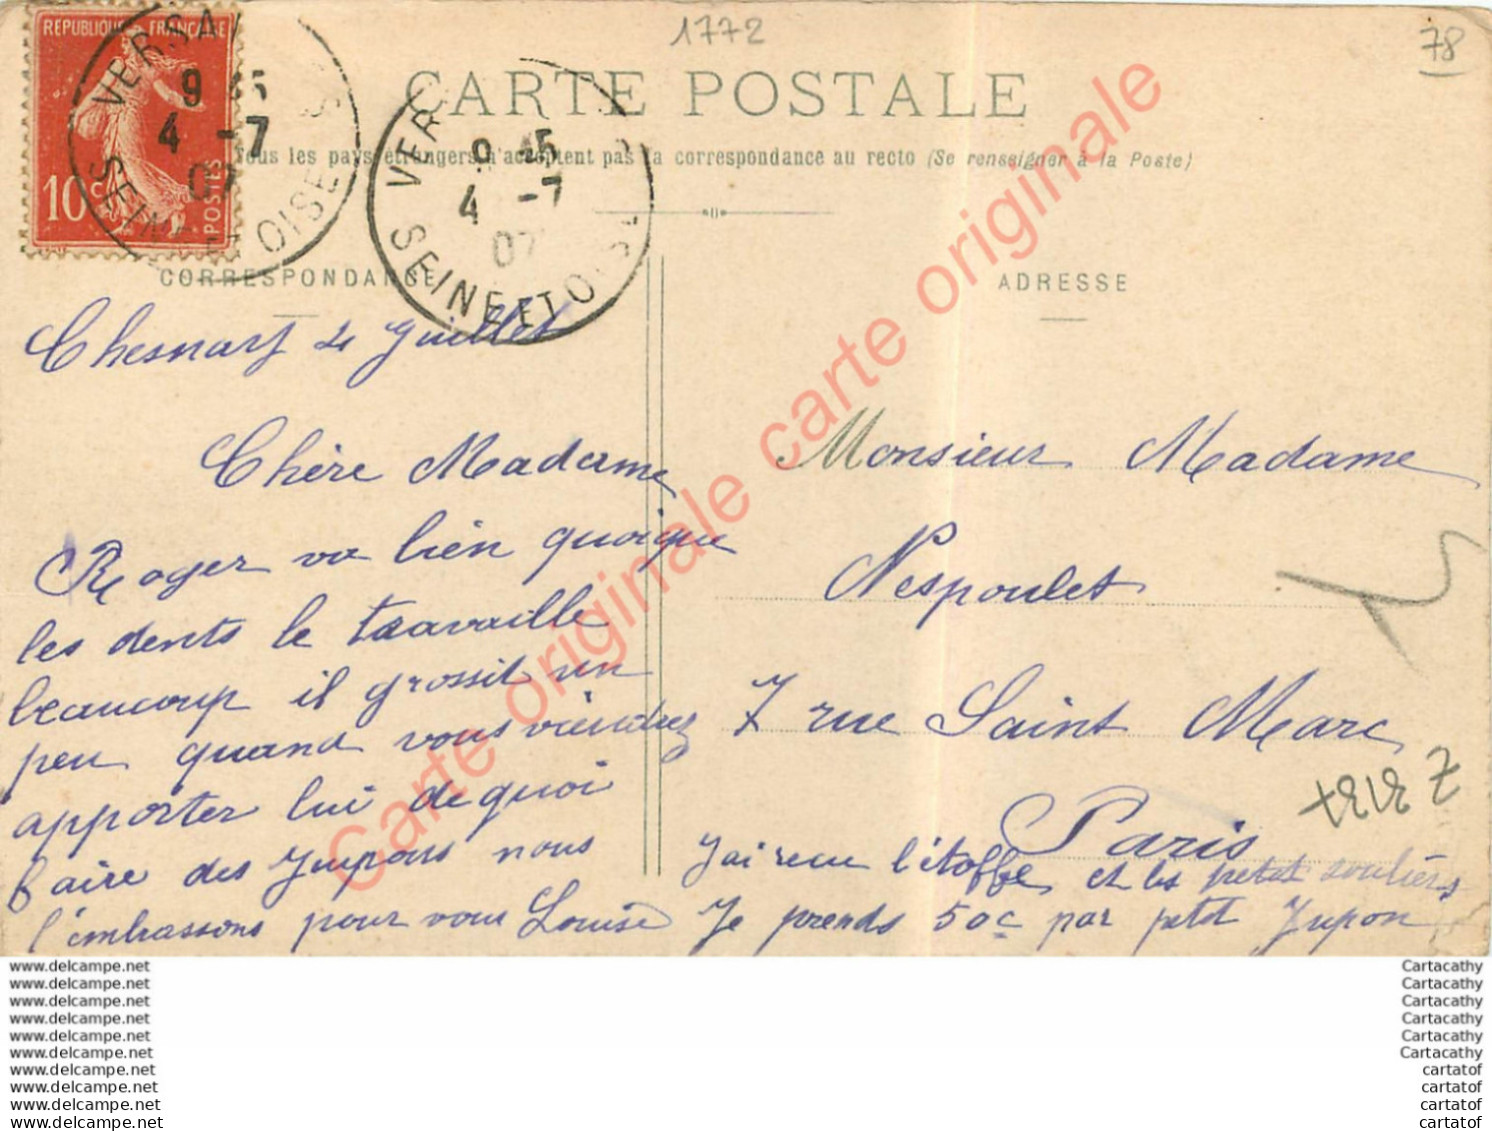 1772
78
RÉPUBLIQUE FRANÇAISE
10c
POSTES
VERSAI
9 45
4 -7
07
SEINE ET OISE
VER
9 45
4 -7
07
SEINE ET OISE
CARTE POSTALE
Tous les pays étrangers n'acceptent pas la correspondance au recto (Se renseigner à la Poste)
CORRESPONDANCE
Chesnay 4 Juillet
Chère Madame
Roger va bien quoique
les dents le travaille
beaucoup il grossit un
peu quand vous viendrez
apporter lui de quoi
faire des Jupons nous
l'embrassons pour vous Louise
ADRESSE
Monsieur Madame
Nespoulet
7 rue Saint Marc
Paris
J'ai recu l'étoffe et les petit souliers
Je prends 50c par petit Jupon
Carte originale carte originale carte originale
www.delcampe.net
www.delcampe.net
www.delcampe.net
www.delcampe.net
www.delcampe.net
www.delcampe.net
www.delcampe.net
www.delcampe.net
www.delcampe.net
www.delcampe.net
Cartacathy
Cartacathy
Cartacathy
Cartacathy
Cartacathy
Cartacathy
cartatof
cartatof
cartatof
cartatof